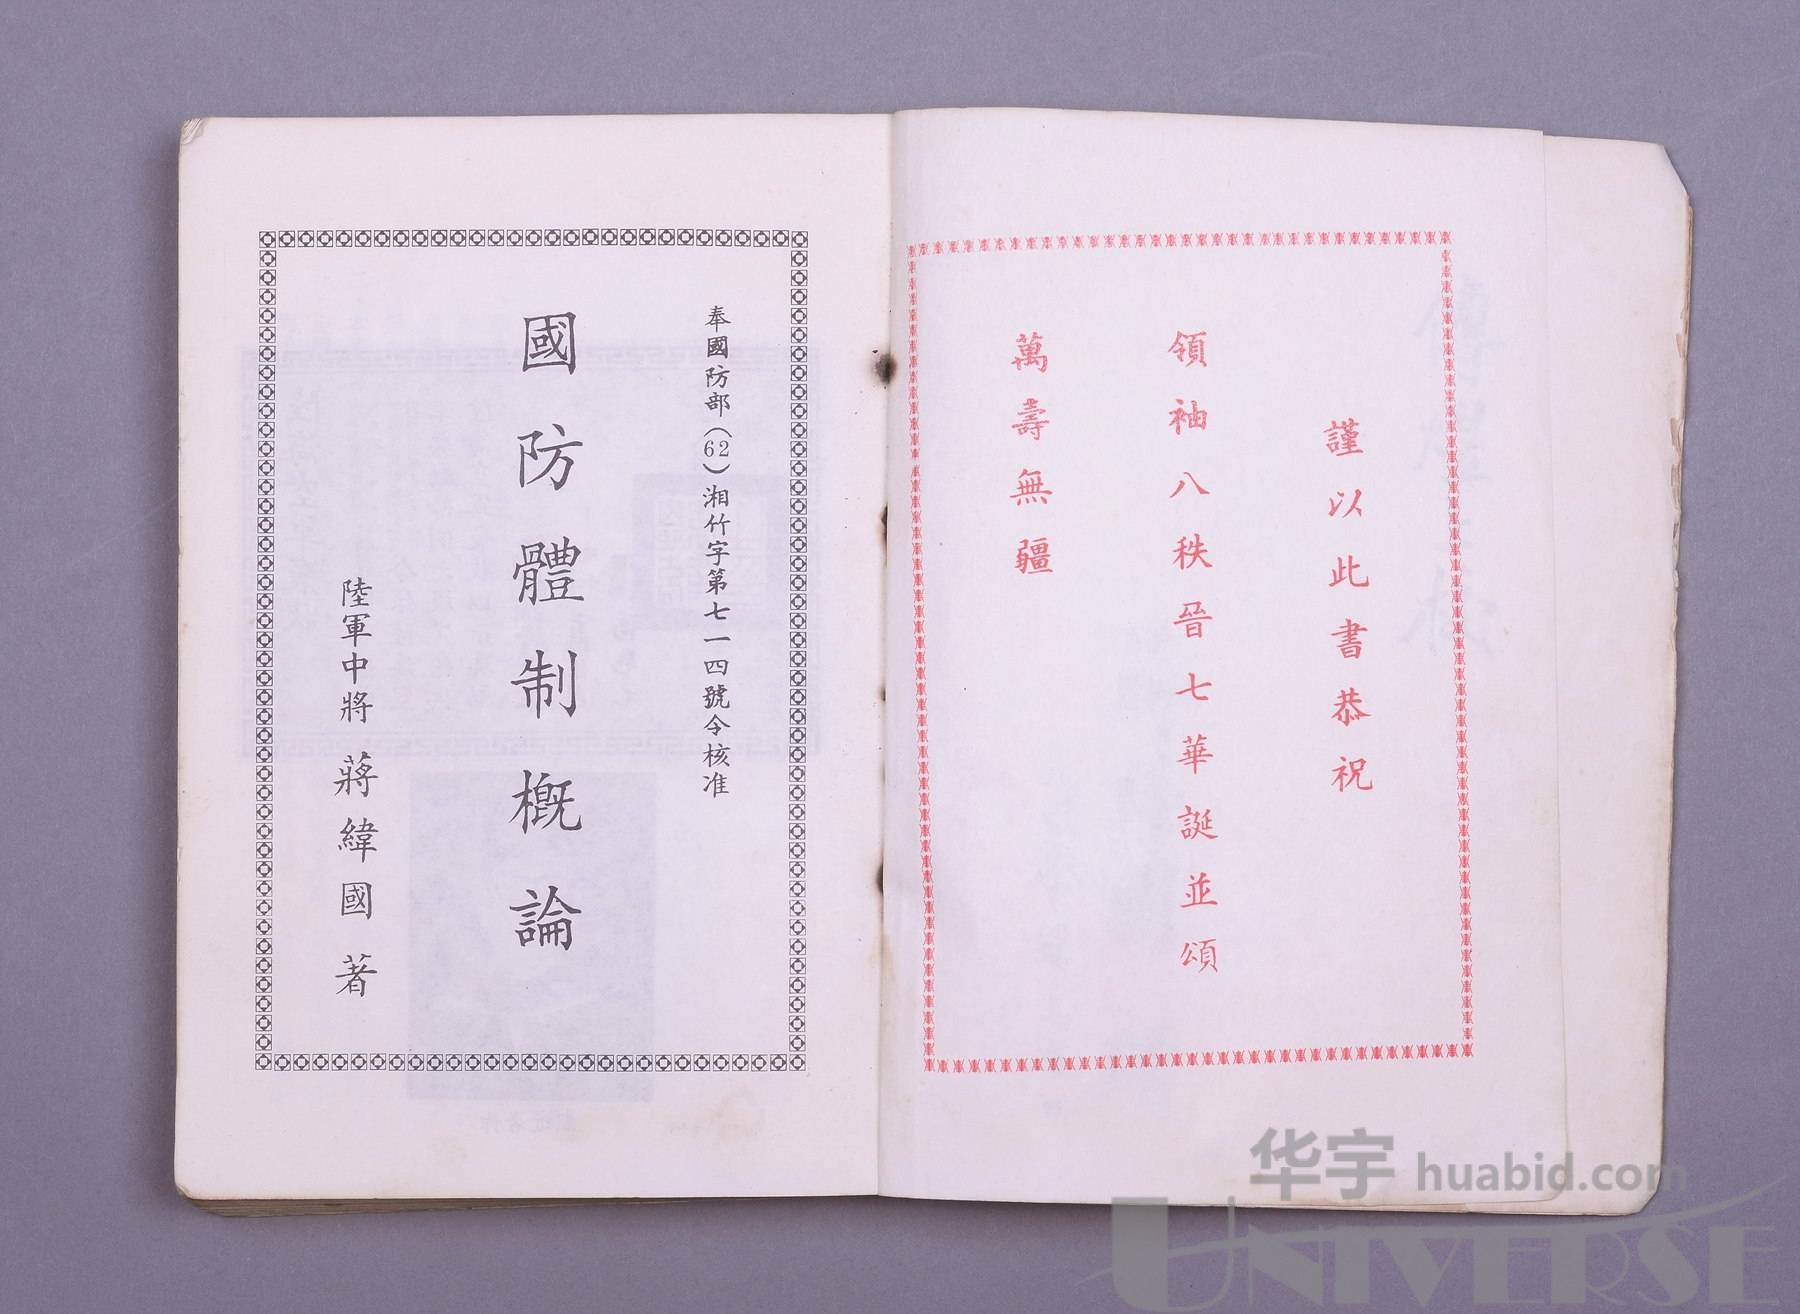 謹以此書恭祝
領袖八秩晉七華誕並頌
萬壽無疆
奉國防部(62)湘竹字第七一四號令核准
國防體制概論
陸軍中將 蔣緯國 著
华宇 huabid.com
UNIVERSE